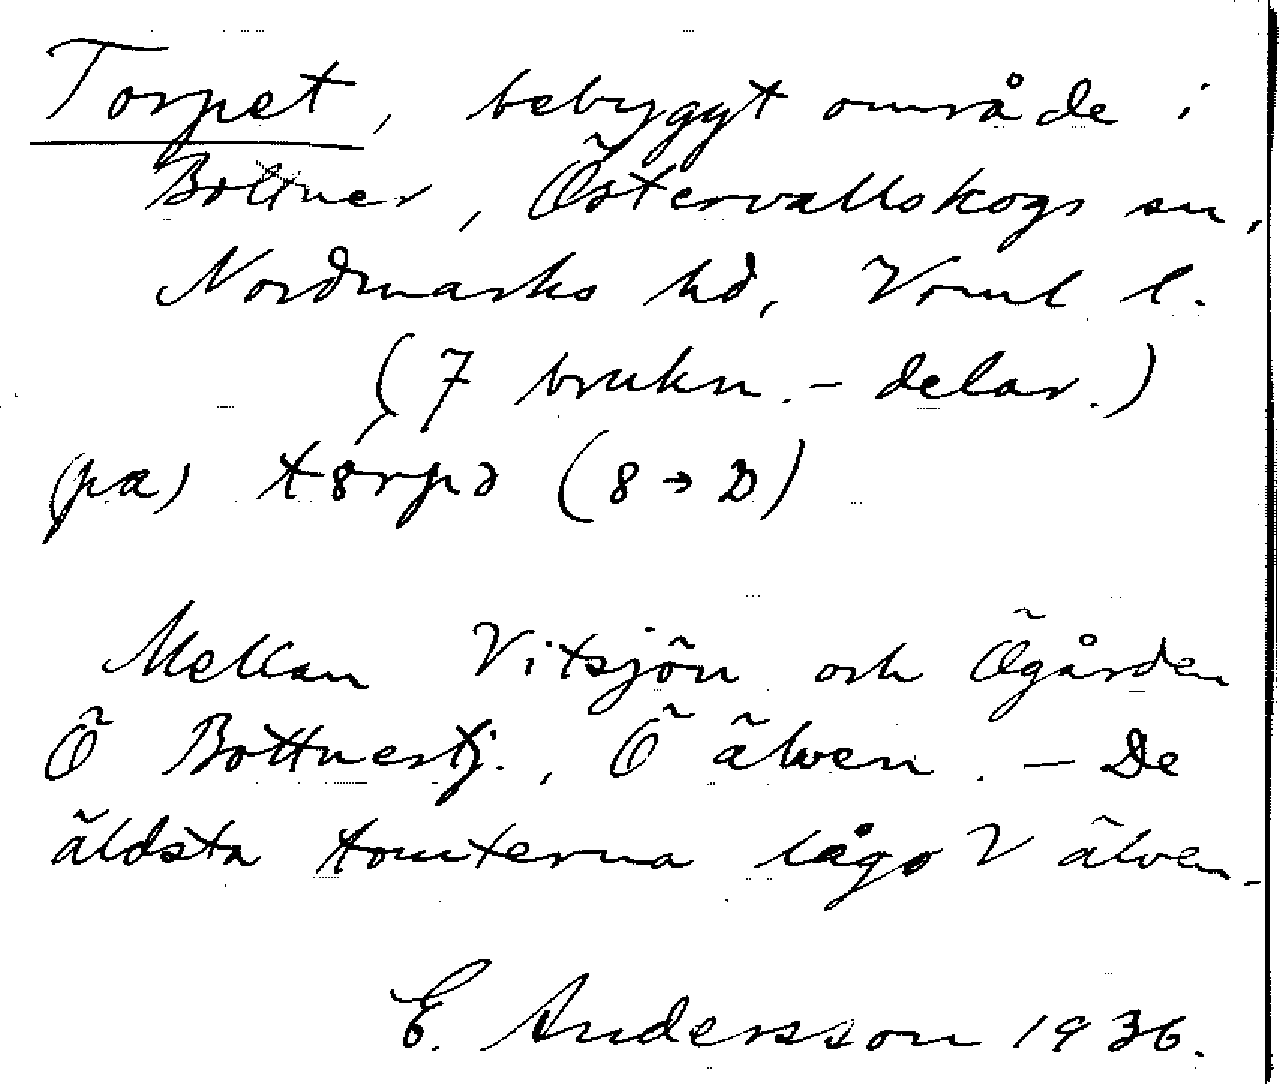 Torpet, bebyggt område i
Bottner, Östervallskogs sn,
Nordmarks hd, Vrml l.
(7 brukn. - delar.)
(pa) t8́rpə (8 → D)
Mellan Vitsjön och Ögården
Ö Bottnestj., Ö älven. - De
äldsta tomterna lågo V älven.
E. Andersson 1936.